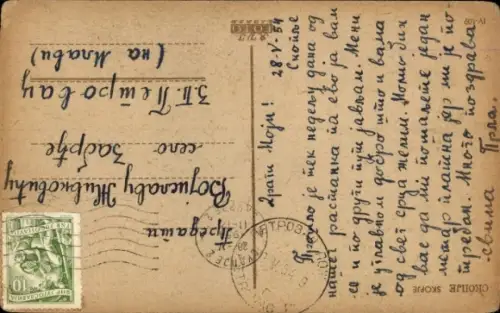 Скопје
28-V-54
Драги Моји!
Прошло је тек недељу дана од
нашег растанка па ево ја вам
се и по други пут јављам. Мени
је углавном добро што и вама
од свег срца желим. Молио бих
вас да ми пошаљете један
метар платна јер ми је по-
требан. Много поздрава
свима
Предати
Војиславу Живковићу
село Забрђе
З.П. Петровац
(на Млави)
СКОПЈЕ SKOPJE
10